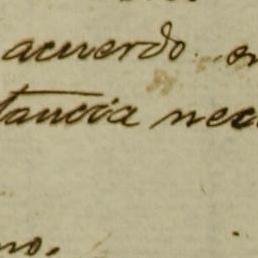 acuerdo
tancia nec
no.